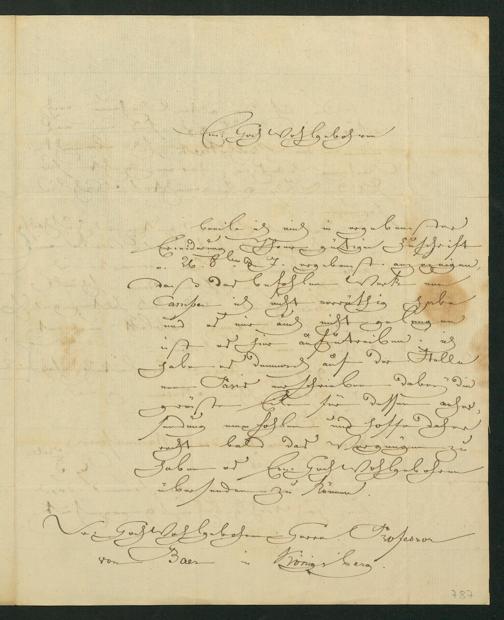 Euer Hochwohlgebohren
beeile ich mich in ergebenster
Erwiederung Ihrer gütigen Zuschrift
v. 26 d. ergebenst anzuzeigen,
daß das befohlene Werk von
Camper ich nicht vorräthig habe
und es mir auch nicht gelungen
ist es hier aufzutreiben; ich
habe es demnach auf der Stelle
von Paris verschrieben dabei die
größte Eile für dessen
sendung empfohlen und hoffe daher
recht bald das Vergnügen zu
haben es Euer Hochwohlgebohren
übersenden zu können.
Sr. Hochwohlgebohren Herrn Professor
von Baer in Königsberg.
787